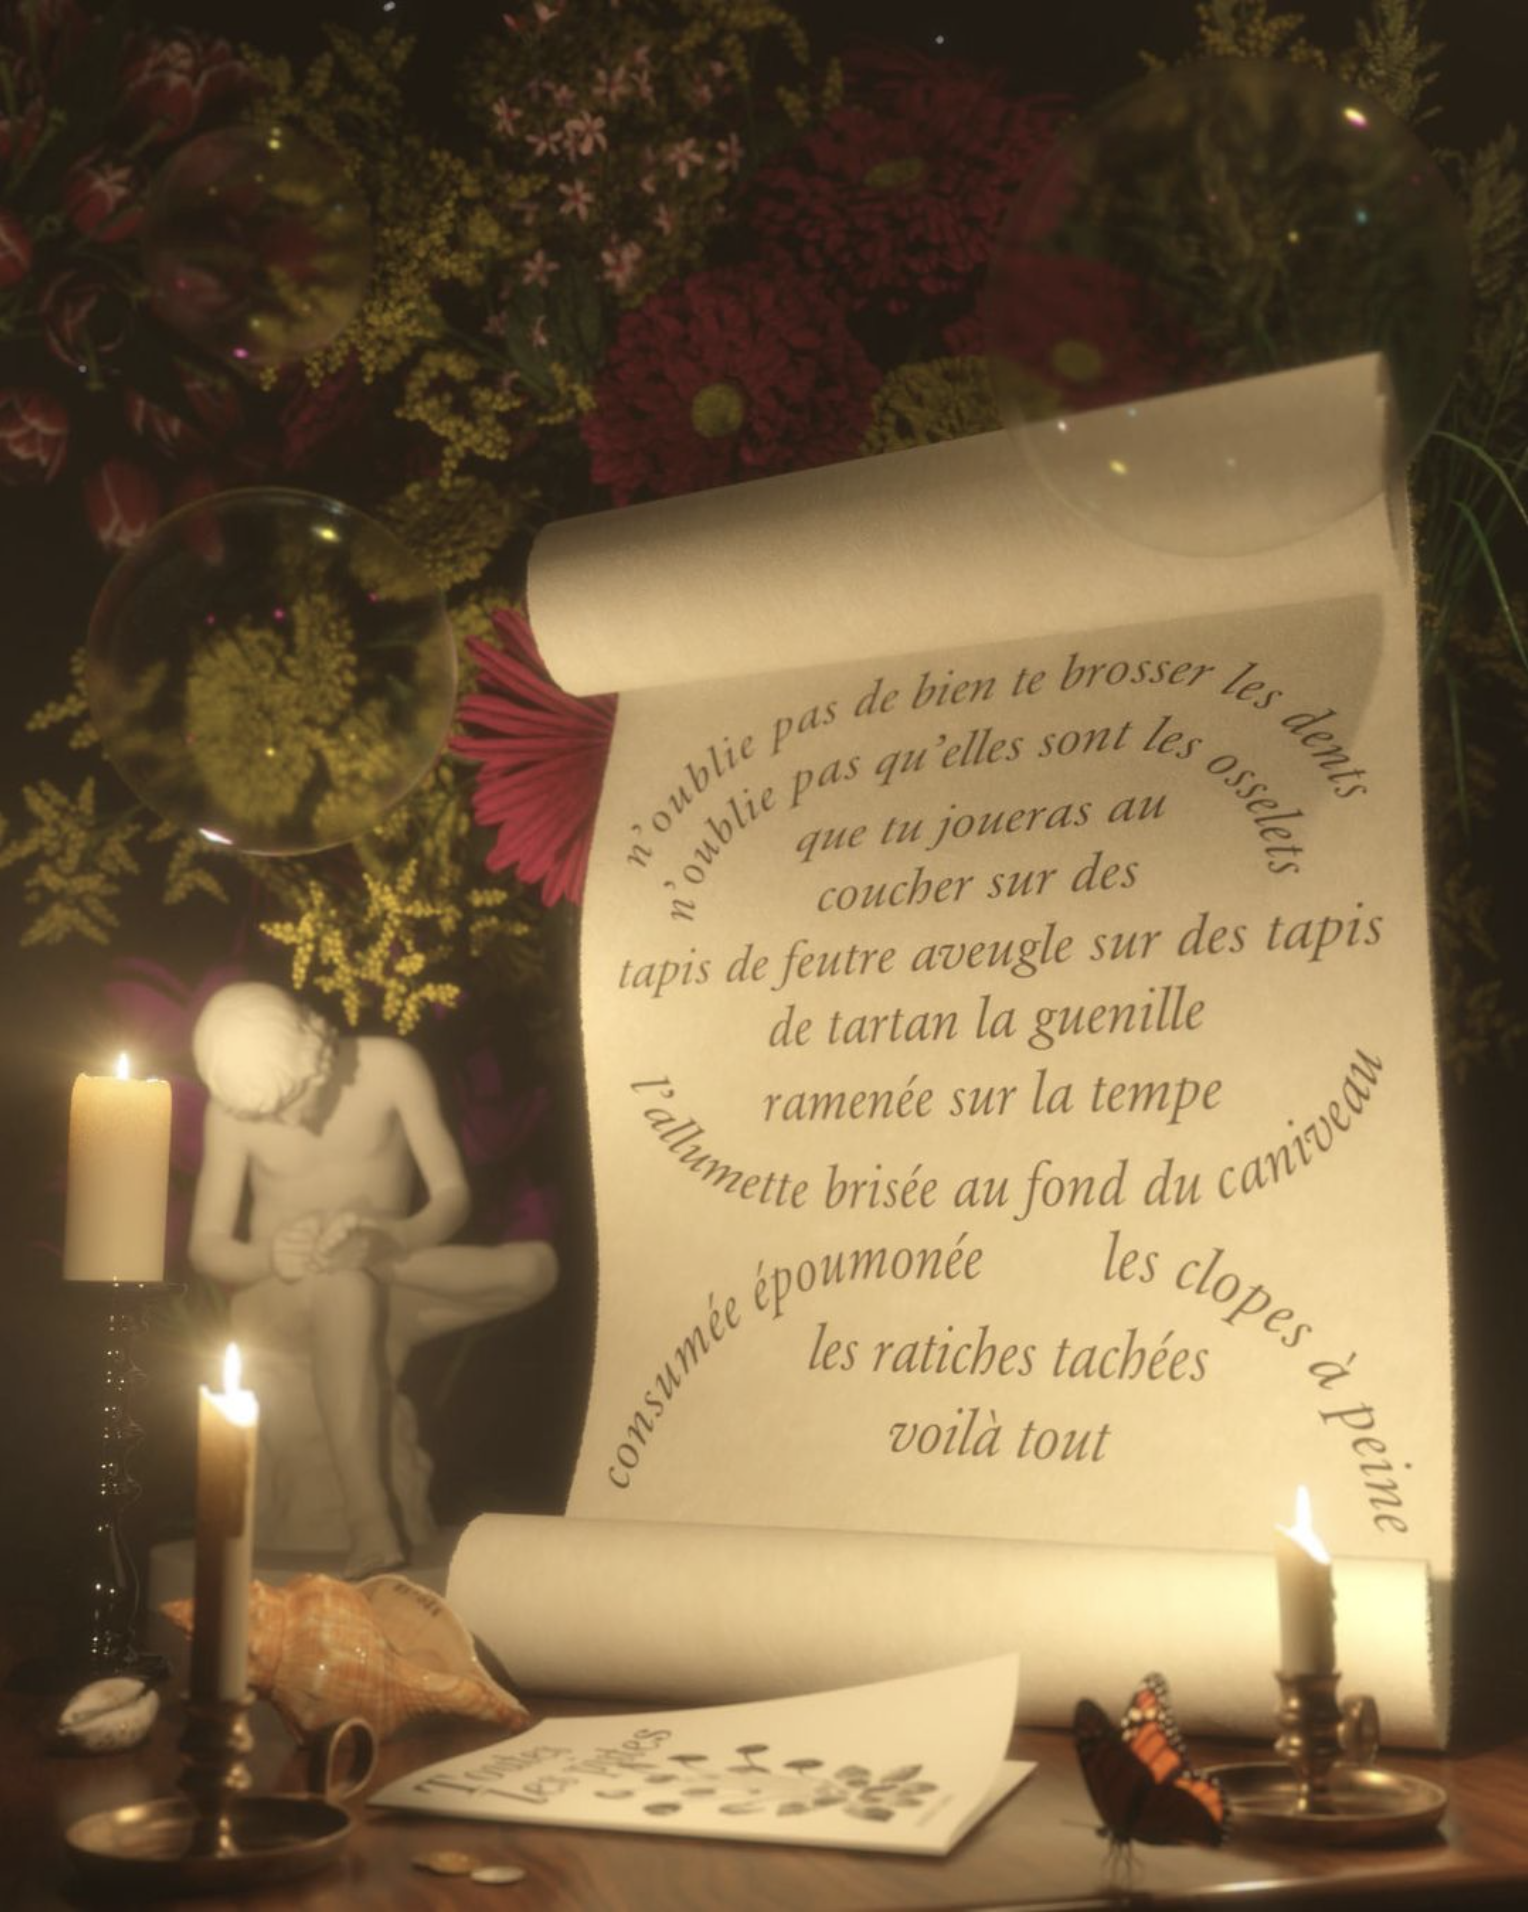 n'oublie pas de bien te brosser les dents
n'oublie pas qu'elles sont les osselets
que tu joueras au
coucher sur des
tapis de feutre aveugle sur des tapis
de tartan la guenille
ramenée sur la tempe
l'allumette brisée au fond du caniveau
consumée époumonée les clopes à peine
les ratiches tachées
voilà tout
Toutes
les pistes